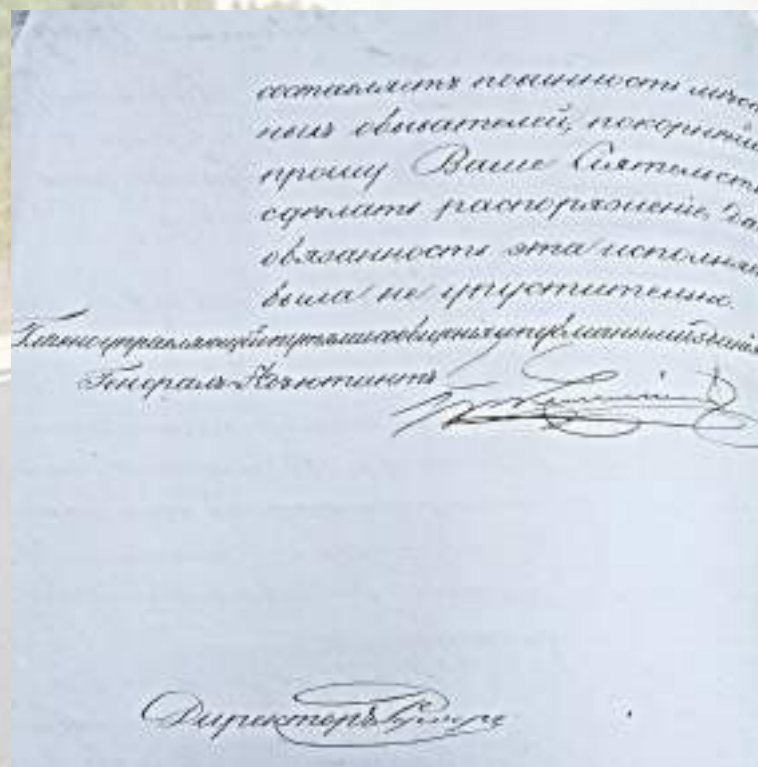 составляетъ повинность мѣст
ныхъ обывателей, покорнѣй
прошу Ваше Сіятельст
сдѣлать распоряженіе, да
обязанность эта исполняе
была не упустительно.
Главноуправляющій путями сообщенія и публичными зданія
Генералъ-Адъютантъ
Директоръ